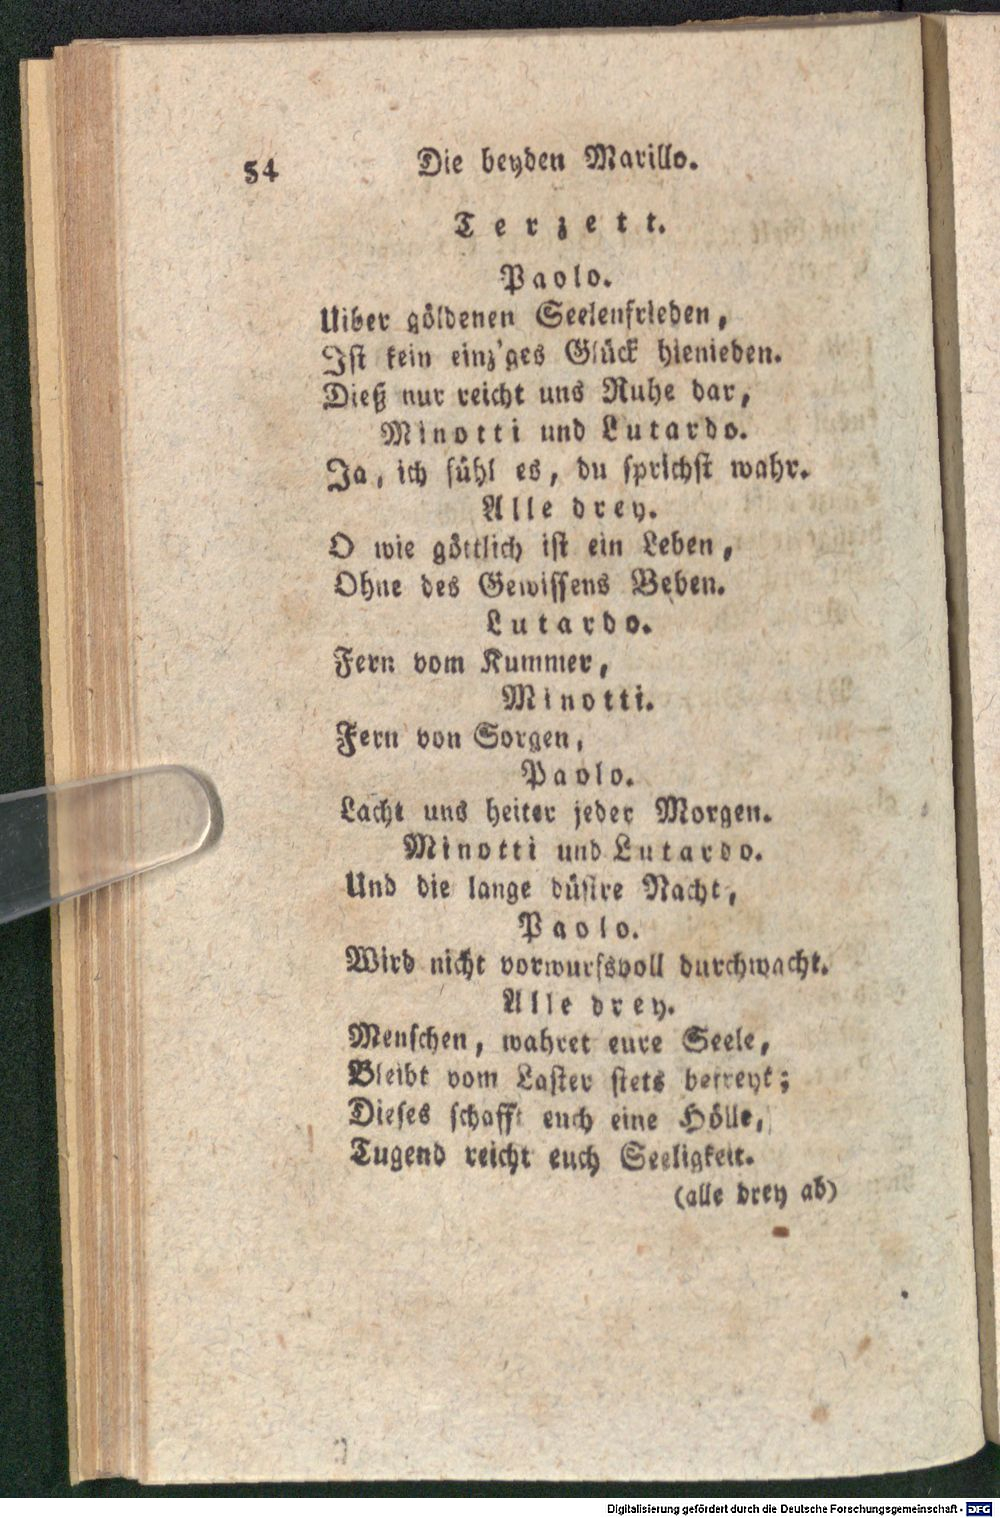 54 Die beyden Marillo.
Terzett.
Paolo.
Uiber göldenen Seelenfrieden,
Ist kein einz'ges Glück hienieden.
Dieß nur reicht uns Ruhe dar,
Minotti und Lutardo.
Ja, ich fühl es, du sprichst wahr.
Alle drey.
O wie göttlich ist ein Leben,
Ohne des Gewissens Beben.
Lutardo.
Fern vom Kummer,
Minotti.
Fern von Sorgen,
Paolo.
Lacht uns heiter jeder Morgen.
Minotti und Lutardo.
Und die lange düstre Nacht,
Paolo.
Wird nicht vorwurfsvoll durchwacht.
Alle drey.
Menschen, wahret eure Seele,
Bleibt vom Laster stets befreyt;
Dieses schafft euch eine Hölle,
Tugend reicht euch Seeligkeit.
(alle drey ab)
Digitalisierung gefördert durch die Deutsche Forschungsgemeinschaft - DFG